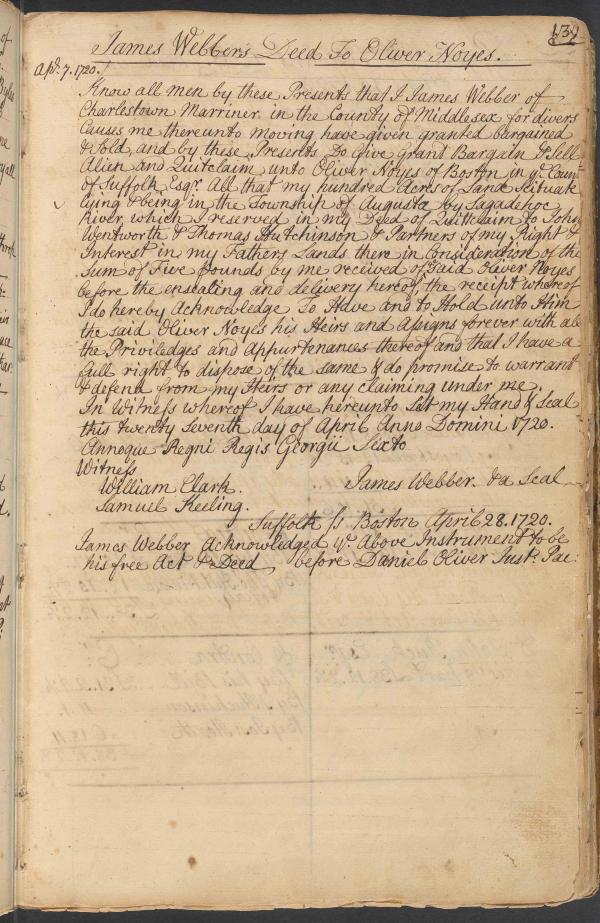 139
James Webber's Deed To Oliver Noyes.
Ap.l 7. 1720.
Know all men by these Presents that I James Webber of
Charlestown Marriner in the County of Middlesex for divers
Causes me thereunto moving have given granted bargained
& Sold and by these Presents Do Give Grand Bargain & Sell
Alien and Quitclaim unto Oliver Noyes of Boston in ye. Count
of Suffolk Esqr. All that my hundred Acres of Land Scituate
lying & being in the Township of Augusta by Sagadehoc
River which I reserved in my Deed of Quitclaim to John
Wentworth & Thomas Hutchinson & Partners of my Right &
Interest in my Fathers Lands there in Consideration of the
Sum of Five pounds by me received of said Oliver Noyes
before the ensealing and delivery hereof, the receipt whereof
I do hereby Acknowledge To Have and to Hold unto Him
the said Oliver Noyes his Heirs and Assigns forever with all
the Priviledges and Appurtenances thereof and that I have a
full right to dispose of the same & do promise to warrant
& defend from my Heirs or any claiming under me.
In Witness whereof I have hereunto Set my Hand & Seal
this twenty Seventh day of April Anno Domini 1720.
Annoque Regni Regis Georgii Sixto
Witness
William Clark. James Webber. & a Seal
Samuel Keeling.
Suffolk ss Boston April 28. 1720.
James Webber Acknowledged ye. Above Instrument to be
his free Act & Deed before Daniel Oliver Just. Pac: